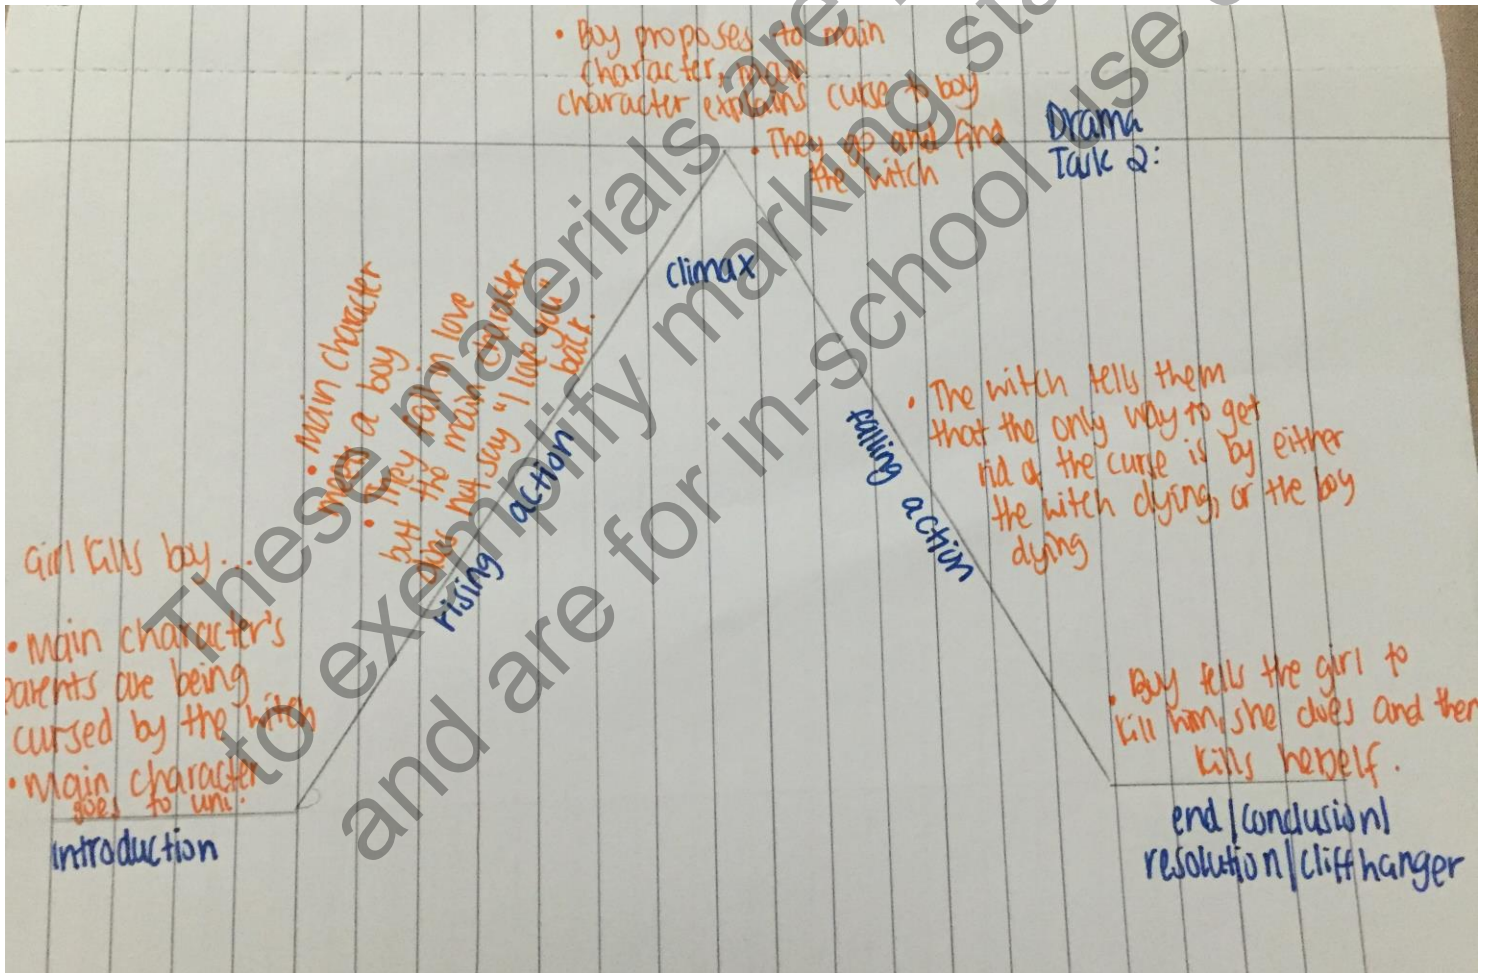 • Boy proposes to main
character, main
character explains curse to boy
• They go and find
the witch
Drama
Task 2:
climax
• Main character
meets a boy
• They fall in love
but the main character
does not say "I love you"
back.
rising action
falling action
• The witch tells them
that the only way to get
rid of the curse is by either
the witch dying, or the boy
dying
Girl kills boy...
• Main character's
parents are being
cursed by the witch
• Main character
goes to uni.
introduction
• Boy tells the girl to
kill him, she does and then
kills herself.
end/conclusion/
resolution/cliffhanger
These materials are
to exemplify marking
and are for in-school use